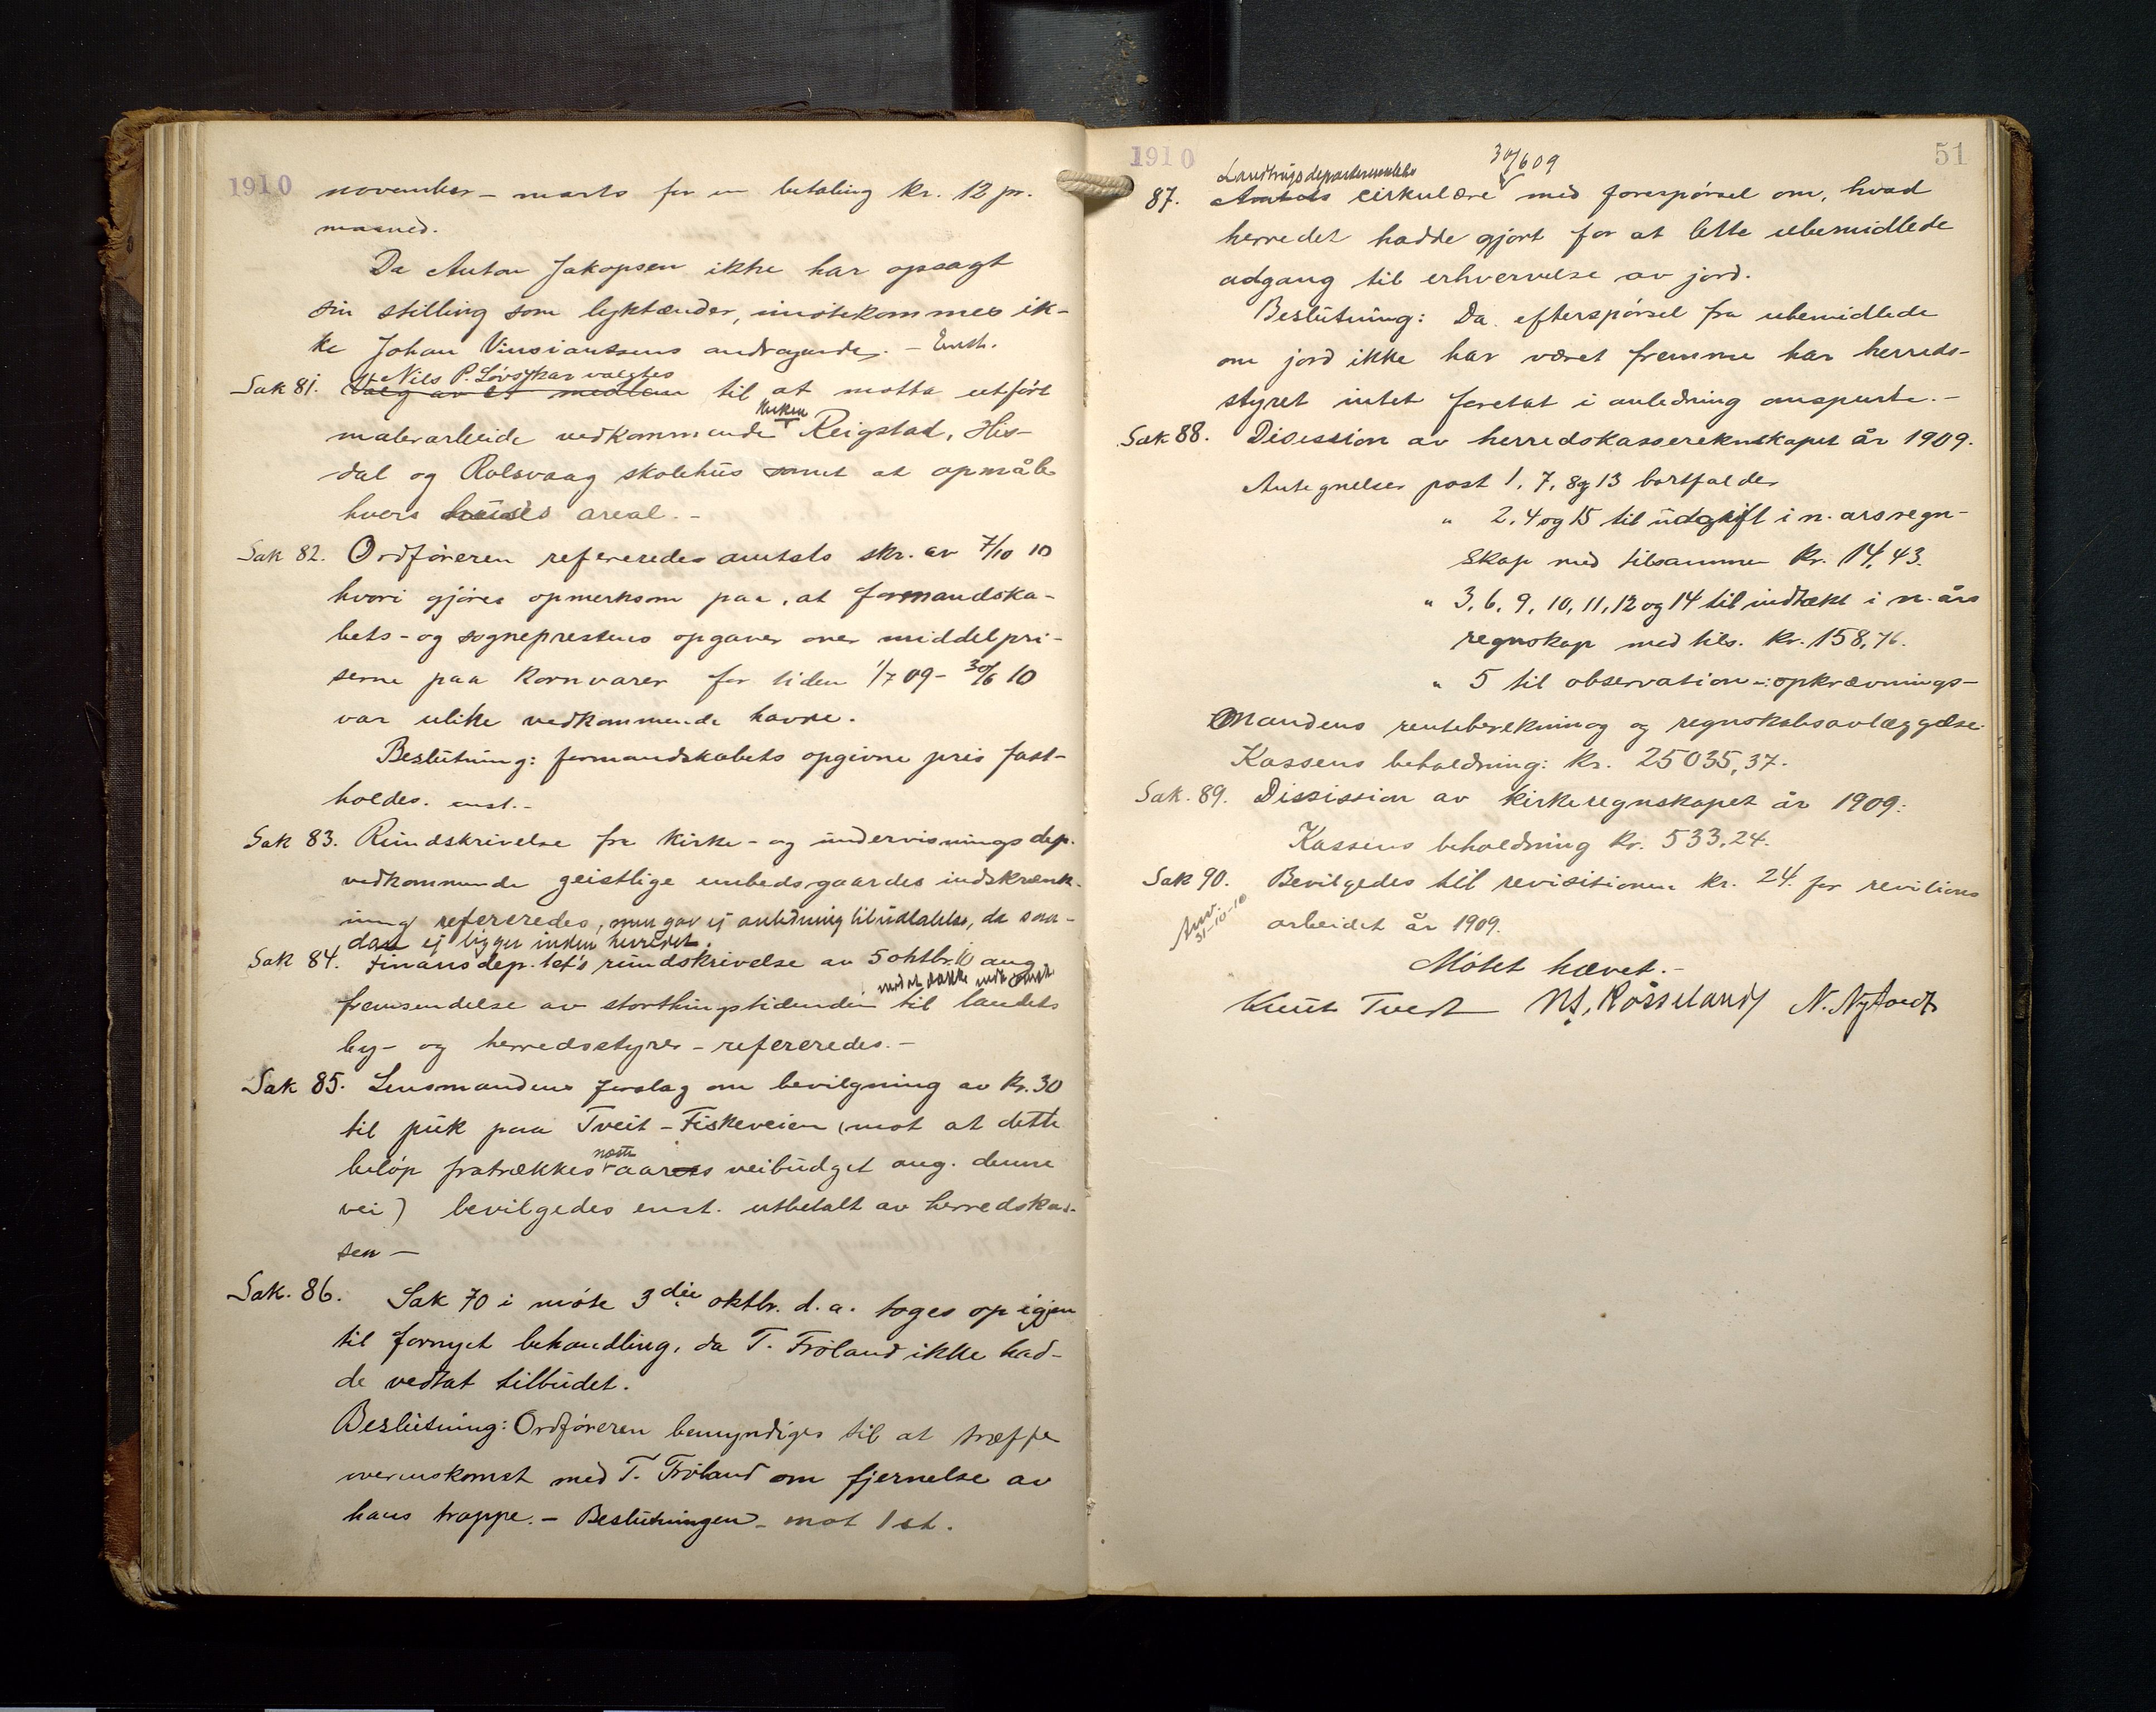 1910
november - marts for en betaling kr. 12 pr.
maaned.
Da Anton Jakopsen ikke har opsagt
sin stilling som lyktænder, imøtekommes ik-
ke Johan Vinsiantsens andragende. - Enst.
Nils P. Løvsykar valgtes
Sak 81. Valg av et medlem til at motta utført
kirken
malerarbeide vedkommende Reigstad, His-
dal og Rolsvaag skolehus samt at opmåle
hvers areal. -
Sak 82. Ordføreren refereredes amtets skr. av 7/10 10
hvori gjøres opmerksom paa, at formandska-
bets- og sogneprestens opgaver over middelpri-
serne paa kornvarer for tiden 1/7 09 - 30/6 10
var ulike vedkommende havre.
Beslutning: formandskabets opgivne pris fast-
holdes. enst. -
Sak 83. Rundskrivelse fra kirke- og undervisningsdep.
vedkommende geistlige embedsgaardes indskrænk-
ning refereredes, men gav ej anledning til udtalelse, da saa-
dan ej ligger inden herredet.
Sak 84. Finansdep.tet's rundskrivelse av 5 oktbr. 10 ang
fremsendelse av storthingstidenden til landets
by- og herredsstyrer - refereredes. -
Sak 85. Lensmandens forslag om bevilgning av kr. 30
til puk paa Tveit - Fiskeveien (mot at dette
næste
beløp fratrækkes aarets veibudget ang. denne
vei) bevilgedes enst. utbetalt av herredskas-
sen -
Sak. 86. Sak 70 i møte 3die oktbr. d.a. toges op igjen
til fornyet behandling, da T. Frøland ikke had-
de vedtat tilbudet.
Beslutning: Ordføreren bemyndiges til at træffe
overenskomst med T. Frøland om fjernelse av
hans trappe. - Beslutningen - mot 1 st.
1910
51
Landbrugsdepartementets 30/6 09
87. Amtets cirkulære med forespørsel om, hvad
herredet hadde gjort for at lette ubemidlede
adgang til erhvervelse av jord.
Beslutning: Da efterspørsel fra ubemidlede
om jord ikke har været fremme har herreds-
styret intet foretat i anledning anspurte. -
Sak 88. Disession av herredskassereknskapet år 1909.
Antegnelses post 1, 7, 8 og 13 bortfalder
" 2, 4 og 15 til udgift i n. årsregn-
skap med tilsammen kr. 14,43.
" 3, 6, 9, 10, 11, 12 og 14 til indtækt i n. års
regnskap med tils. kr. 158,76.
" 5 til observation -: opkrævnings-
mandens renteberekning og regnskabsavlæggelse.
Kassens beholdning: kr. 25035,37.
Sak. 89. Dissission av kirkeregnskapet år 1909:
Kassens beholdning kr. 533,24.
Sak 90. Bevilgedes til revisitionen kr. 24. for revitions
Anv. 31-10-10
arbeidet år 1909.
Møtet hævet. -
Knut Tveit Ns. Røsseland N. Nytvedt